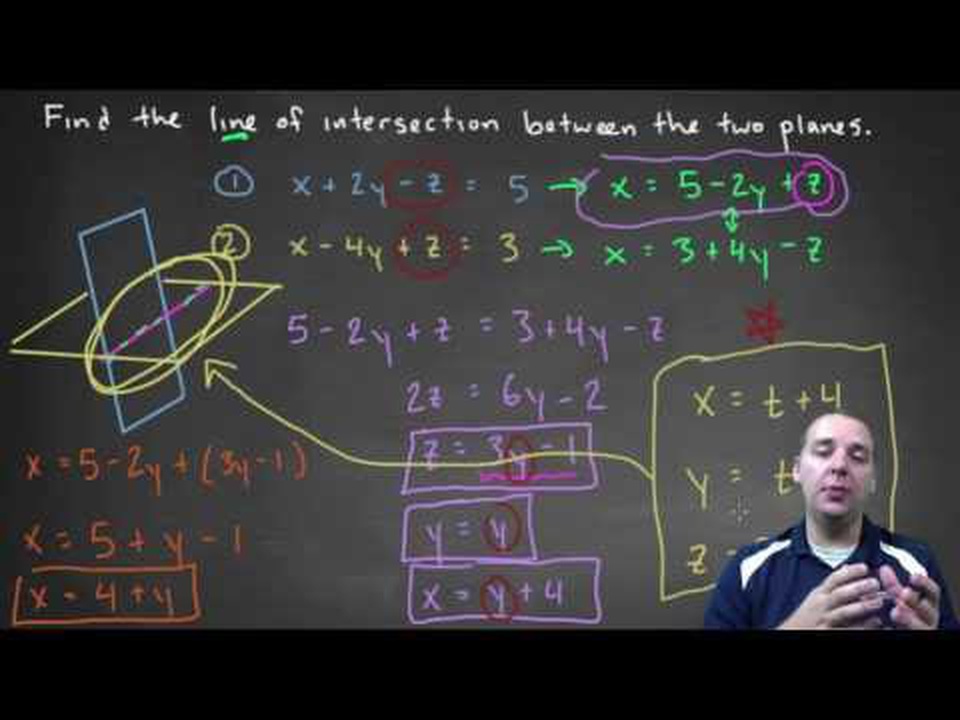 Find the line of intersection between the two planes.
① x + 2y - z = 5 → x = 5 - 2y + z
② x - 4y + z = 3 → x = 3 + 4y - z
5 - 2y + z = 3 + 4y - z
2z = 6y - 2
z = 3y - 1
y = y
x = y + 4
x = 5 - 2y + (3y - 1)
x = 5 + y - 1
x = 4 + y
x = t + 4
y = t
z =